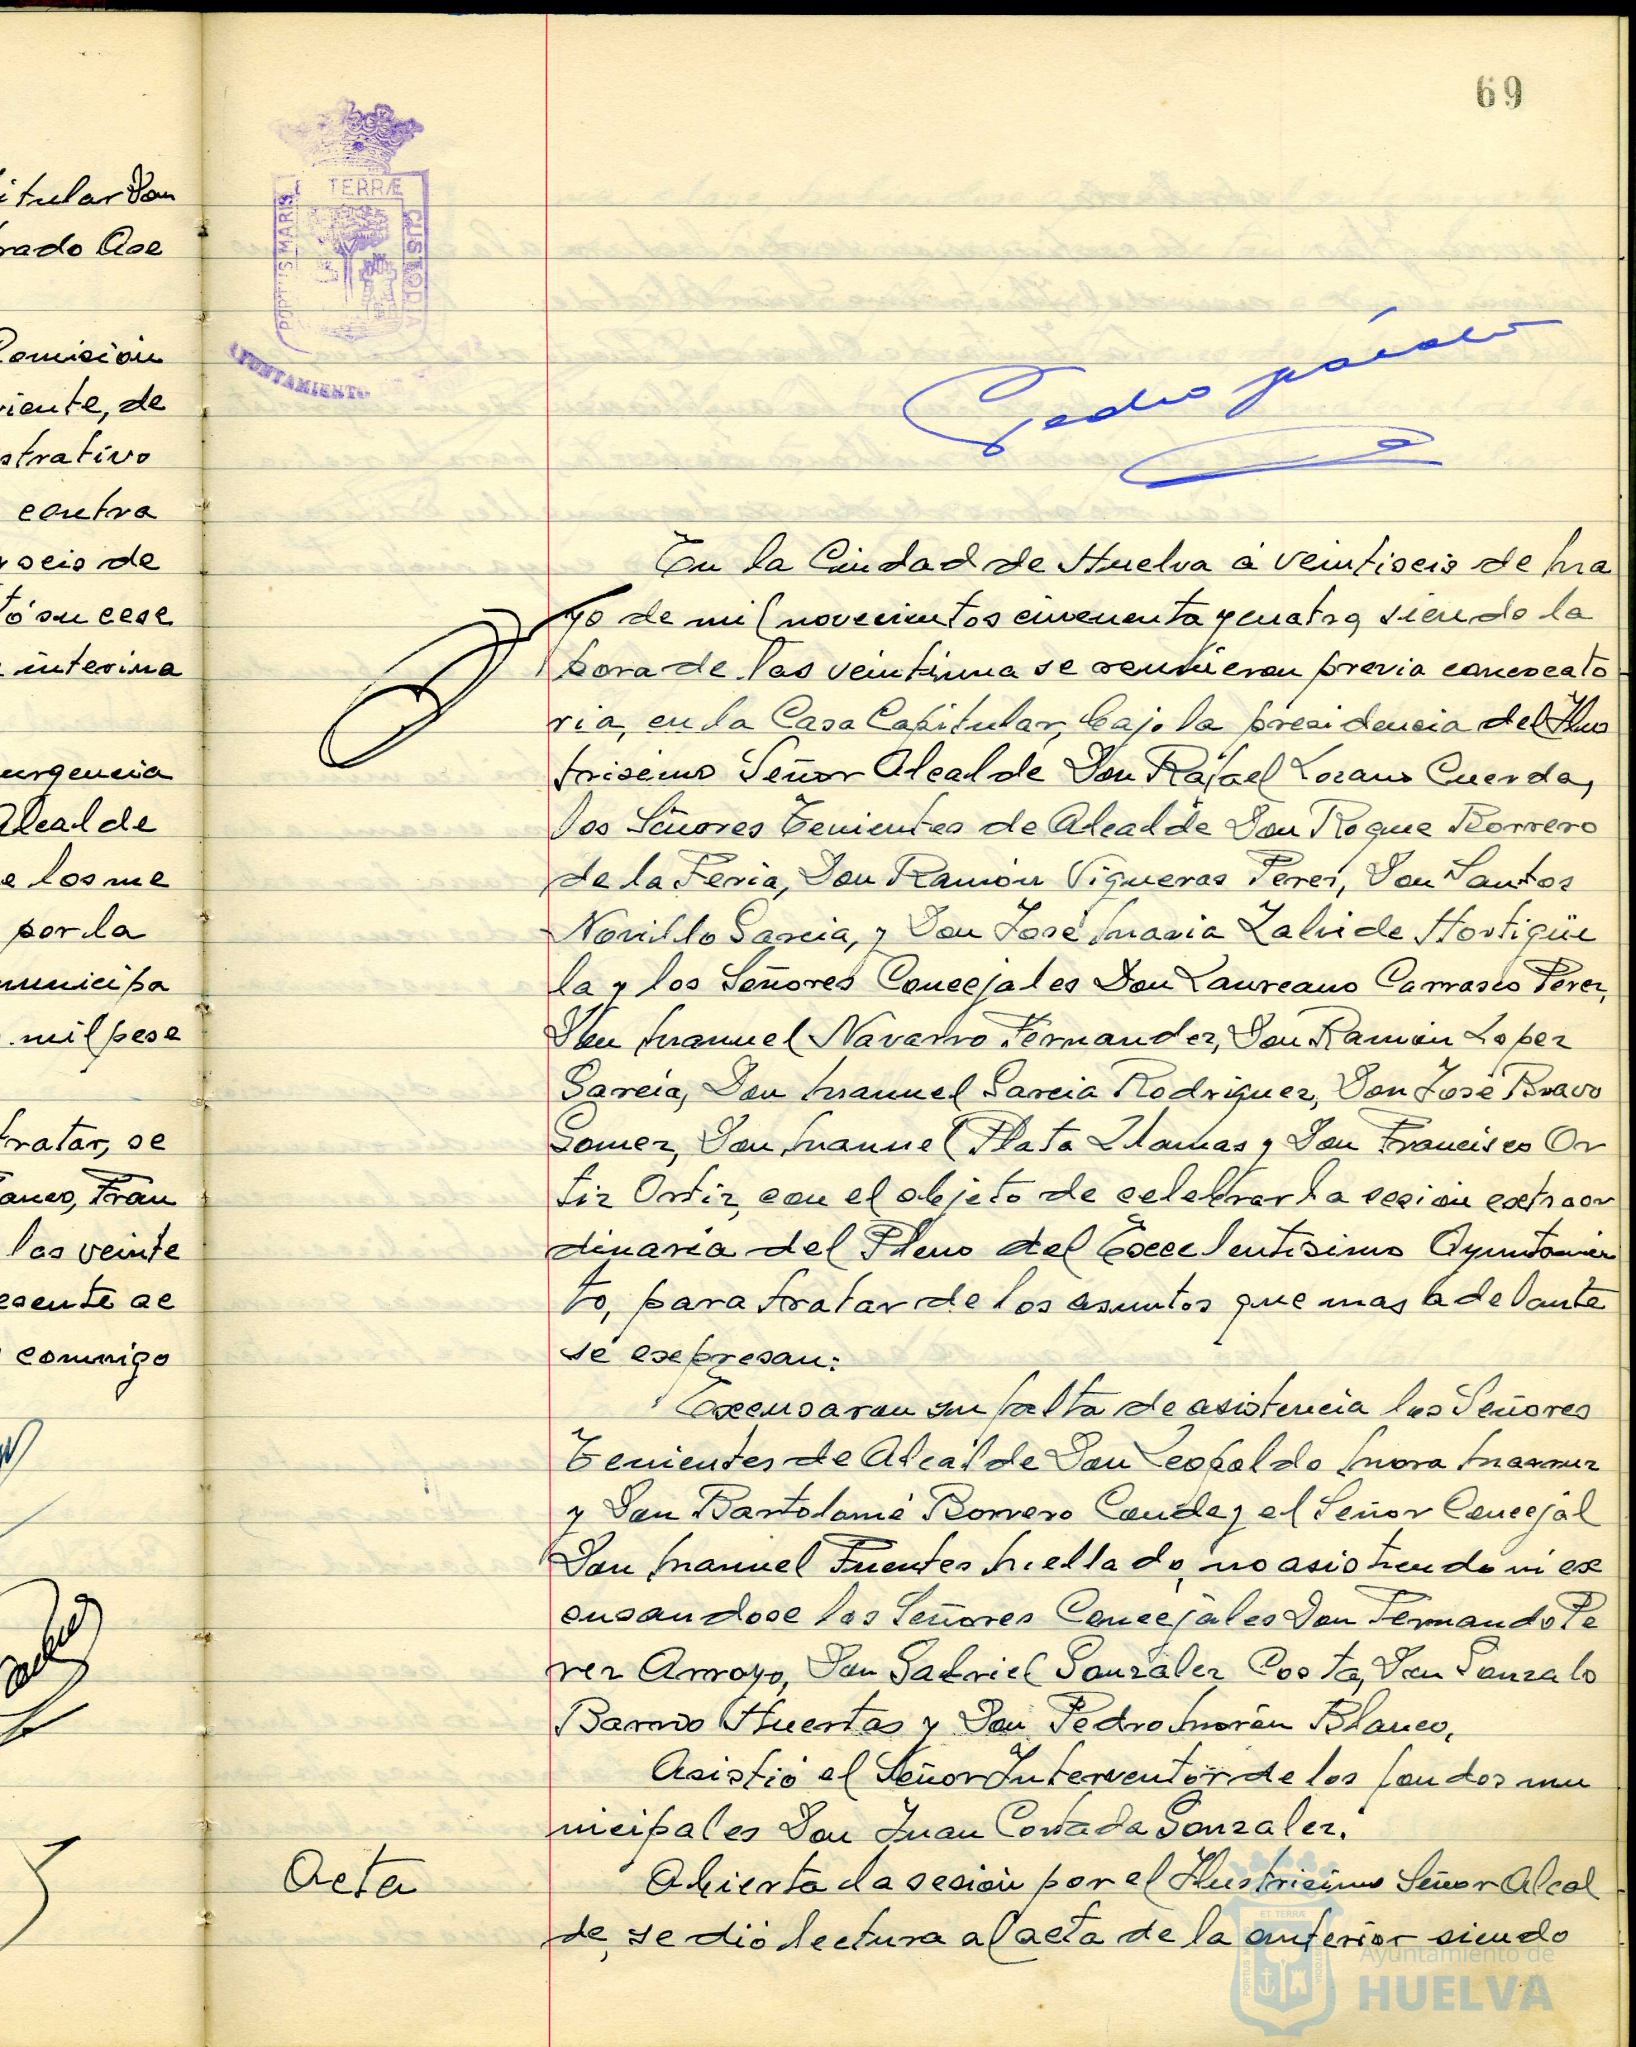 69
TERRÆ
PORTUS MARIS
CUSTODIA
AYUNTAMIENTO
itular Don
rado Ase
Comisión
riente, de
strativo
contra
seis de
tó su cese
interina
urgencia
Alcalde
e los me
por la
municipa
mil pese
tratar, se
anco, Fran
las veinte
esente ac
conmigo
En la Ciudad de Huelva á veintiseis de Ma
yo de mil novecientos cincuenta y cuatro, siendo la
hora de las veintiuna se reunieron previa convocato
ria, en la Casa Capitular, bajo la presidencia del Ilus
trisimo Señor Alcalde Don Rafael Lozano Cuerda,
los Señores Tenientes de Alcalde Don Roque Borrero
de la Feria, Don Ramón Vigueras Perez, Don Santos
Novillo Garcia, y Don José Maria Zalvide Hortigüe
la y los Señores Concejales Don Laureano Carrasco Perez,
Don Manuel Navarro Fernandez, Don Ramón Lopez
Garcia, Don Manuel Garcia Rodriguez, Don José Bravo
Gomez, Don Manuel Plata Llamas y Don Francisco Or
tiz Ortiz, con el objeto de celebrar la sesión extraor
dinaria del Pleno del Excelentisimo Ayuntamien
to, para tratar de los asuntos que mas adelante
se expresan:
Excusaron su falta de asistencia los Señores
Tenientes de Alcalde Don Leopoldo Mora
y Don Bartolomé Borrero Conde y el Señor Concejal
Don Manuel Fuentes Mellado, no asistiendo ni ex
cusandose los Señores Concejales Don Fernando Pe
rez Arroyo, Don Gabriel González Costa, Don Gonzalo
Barrio Huertas y Don Pedro Morón Blanco.
Asistió el Señor Interventor de los fondos mu
nicipales Don Juan Cortada Gonzalez.
Acta
Abierta la sesión por el Ilustrisimo Señor Alcal
de, se dió lectura al acta de la anterior siendo
Ayuntamiento de
HUELVA